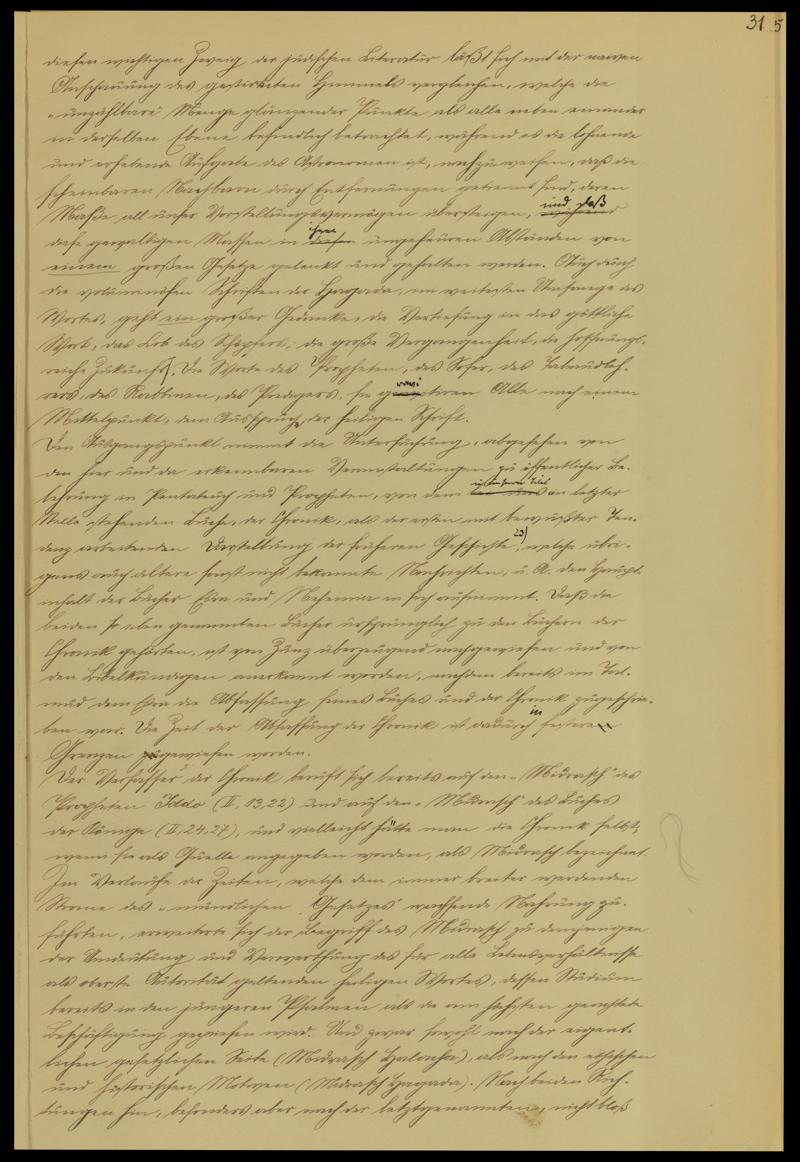 31 5
diesen wichtigen Zweig der jüdischen Literatur läßt sich mit der naiven
Anschauung des gestirnten Himmels vergleichen, welche die
"unzählbare" Menge glänzender Punkte als alle neben einander
in derselben Ebene befindlich betrachtet, während es die lohnende
und erhebende Aufgabe des Astronomen ist, nachzuweisen, daß die
scheinbaren Nachbarn durch Entfernungen getrennt sind, deren
Maße all unser Vorstellungsvermögen übersteigen, während und daß
diese gewaltigen Massen in diesen ihren ungeheuren Abständen von
einem großen Gesetze gelenkt und gehalten werden. Auch durch
die voluminösen Schriften der Hagada, im weitesten Umfange des
Wortes, geht ein großer Gedanke, die Vertiefung in das göttliche
Wort, das Lob des Schöpfers, die große Vergangenheit, die hoffnungs-
reiche Zukunft. Die Worte des Propheten, des Sofer, des Talmudleh-
rers, des Rabbinen, des Predigers, sie gravitiren Alle nach einem
Mittelpunkt, dem Ausspruch der heiligen Schrift.
Den Ausgangspunkt nimmt die Untersuchung, abgesehen von
den hier und da erkennbaren Veranstaltungen zu öffentlicher Be-
lehrung in Pentateuch und Propheten, von dem bei uns an letzter
Stelle stehenden Buche, der Chronik, als der ersten mit bewußter Ten-
denz arbeitenden Darstellung der früheren Geschichte, 23) welche übri-
gens auch ältere sonst nicht bekannte Nachrichten, u. A. den Haupt-
inhalt der Bücher Esra und Nehemia in sich aufnimmt. Daß die
beiden so eben genannten Bücher ursprünglich zu den Büchern der
Chronik gehörten, ist von Zunz überzeugend nachgewiesen und von
den Bibelkundigen anerkannt worden, nachdem bereits im Tal-
mud dem Esra die Abfassung seines Buches und der Chronik zugeschrie-
ben war. Die Zeit der Abfassung der Chronik ist dadurch in festere
Grenzen gewiesen worden.
Der Verfasser der Chronik beruft sich bereits auf den "Midrasch" des
Propheten Iddo (II, 13,22) und auf den "Midrasch" des Buches
der Könige (II, 24,27), und vielleicht hätte man die Chronik selbst,
wenn sie als Quelle angegeben worden, als Midrasch bezeichnet.
Im Verlaufe der Zeiten, welche dem immer breiter werdenden
Strome des "mündlichen Gesetzes" wachsende Nahrung zu-
führten, erweiterte sich der Begriff des Midrasch zu demjenigen
der Umdeutung und Verwerthung des für alle Lebensverhältnisse
als oberste Autorität geltenden heiligen Wortes, dessen Studium
bereits in den jüngeren Psalmen als die am höchsten geachtete
Beschäftigung gepriesen wird. Und zwar sowohl nach der eigent-
lichen gesetzlichen Seite (Midrasch Halacha), als nach den ethischen
und historischen Motiven (Midrasch Hagada). Nach beiden Rich-
tungen hin, besonders aber nach der letztgenannten, nicht bloß